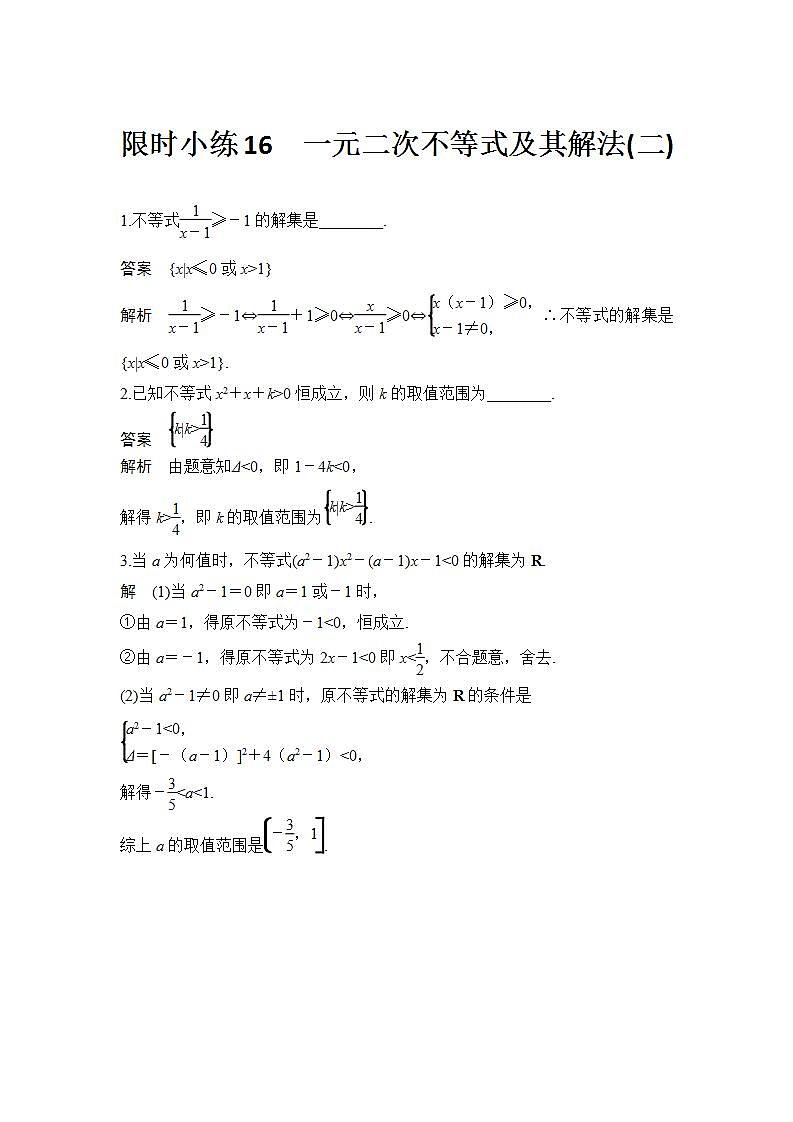 限时小练16　一元二次不等式及其解法(二)
1.不等式\frac{1}{x-1}≥-1的解集是________.
答案　{x|x≤0或x>1}
解析　\frac{1}{x-1}≥-1⇔\frac{1}{x-1}+1≥0⇔\frac{x}{x-1}≥0⇔{x（x-1）≥0，x-1≠0，∴不等式的解集是
{x|x≤0或x>1}.
2.已知不等式x²+x+k>0恒成立，则k的取值范围为________.
答案　{k|k>\frac{1}{4}}
解析　由题意知Δ<0，即1-4k<0，
解得k>\frac{1}{4}，即k的取值范围为{k|k>\frac{1}{4}}.
3.当a为何值时，不等式(a²-1)x²-(a-1)x-1<0的解集为R.
解　(1)当a²-1=0即a=1或-1时，
①由a=1，得原不等式为-1<0，恒成立.
②由a=-1，得原不等式为2x-1<0即x<\frac{1}{2}，不合题意，舍去.
(2)当a²-1≠0即a≠±1时，原不等式的解集为R的条件是
{a²-1<0，
Δ=[-（a-1）]²+4（a²-1）<0，
解得-\frac{3}{5}<a<1.
综上a的取值范围是(-\frac{3}{5}，1].